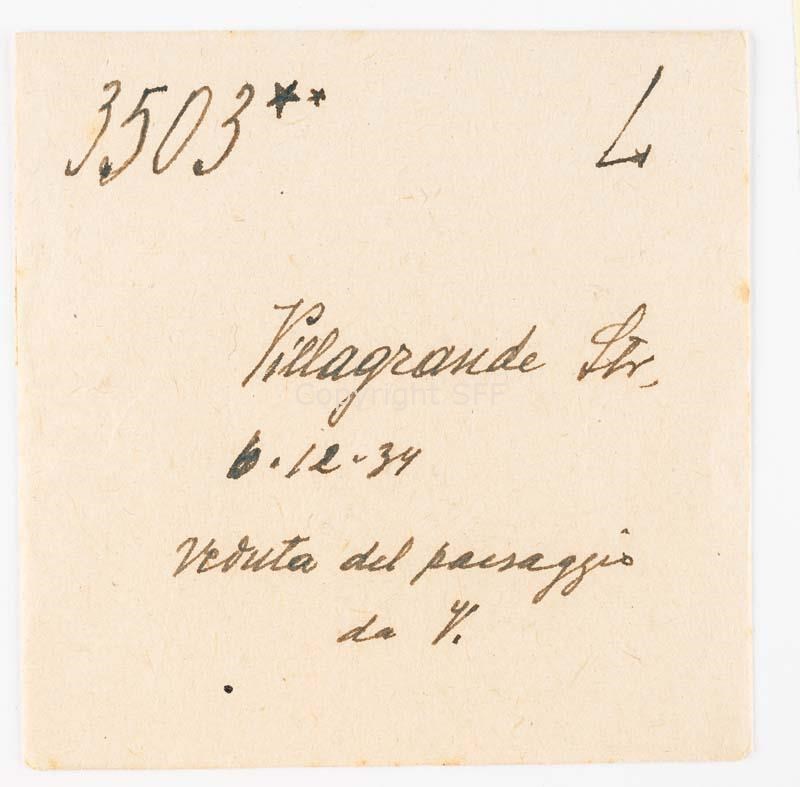 3503** L
Villagrande Str.
Copyright SFF
6.12.34
veduta del paesaggio
da V.